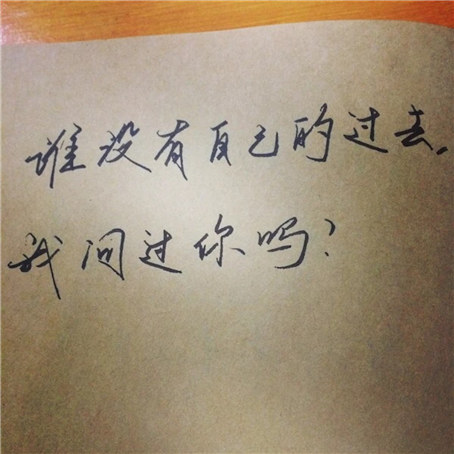 谁没有自己的过去.
我问过你吗?